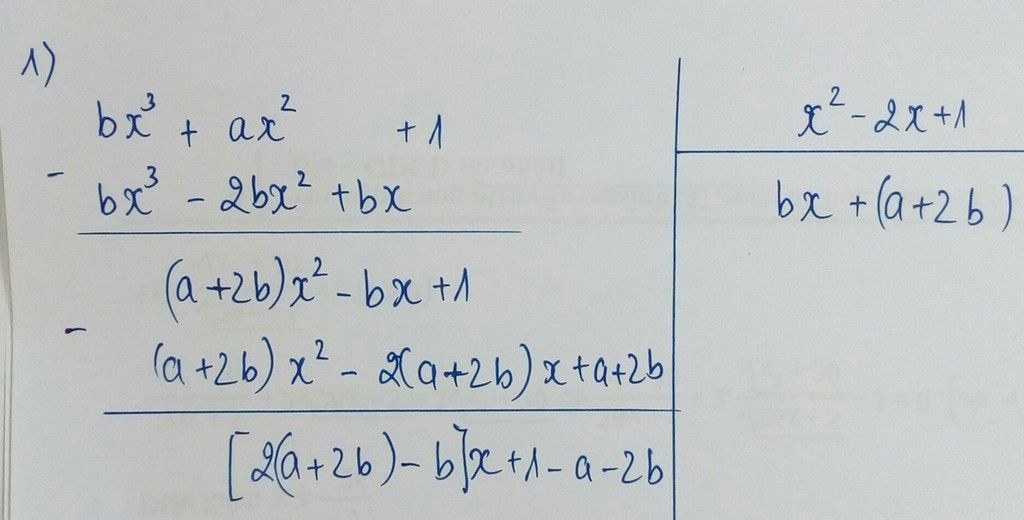 1)
bx³ + ax² + 1
x² - 2x + 1
-
bx³ - 2bx² + bx
bx + (a + 2b)
(a + 2b)x² - bx + 1
-
(a + 2b) x² - 2(a + 2b) x + a + 2b
[2(a + 2b) - b]x + 1 - a - 2b